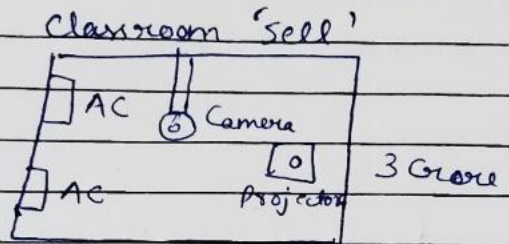 Classroom 'Sell'
AC
Camera
Projector
3 Crore
AC